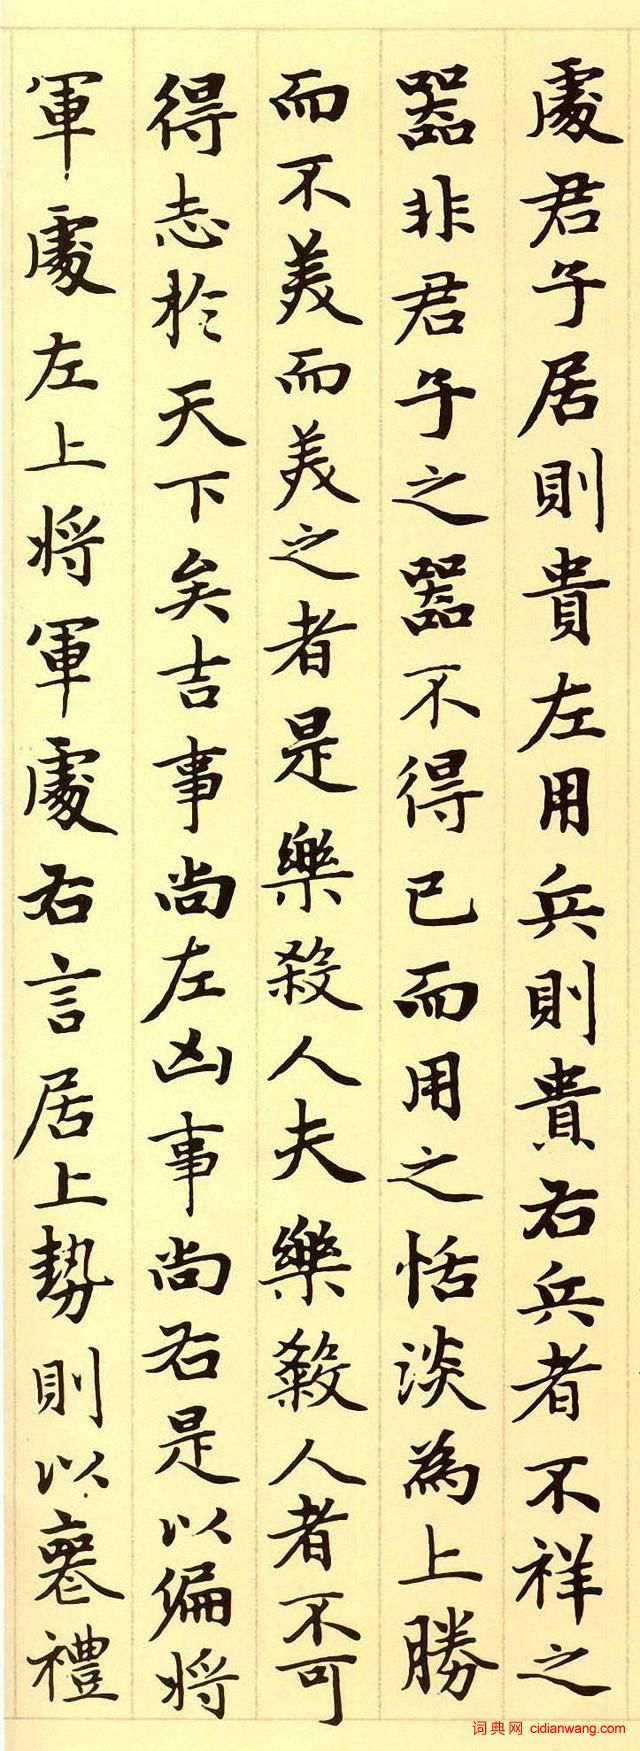 處君子居則貴左用兵則貴右兵者不祥之
器非君子之器不得已而用之恬淡為上勝
而不美而美之者是樂殺人夫樂殺人者不可
得志於天下矣吉事尚左凶事尚右是以偏將
軍處左上將軍處右言居上勢則以喪禮
词典网 cidianwang.com